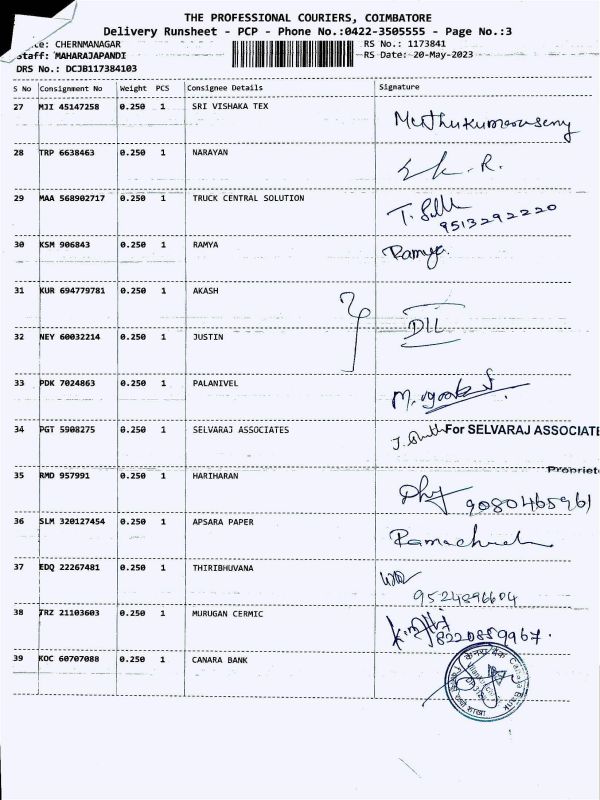 THE PROFESSIONAL COURIERS, COIMBATORE
Delivery Runsheet - PCP - Phone No.:0422-3505555 - Page No.:3
te: CHERNMANAGAR RS No.: 1173841
Staff: MAHARAJAPANDI RS Date: 20-May-2023
DRS No.: DCJB117384103
S No Consignment No Weight PCS Consignee Details Signature
27 MJI 45147258 0.250 1 SRI VISHAKA TEX
Muthukumarasamy
28 TRP 6638463 0.250 1 NARAYAN
R.
29 MAA 568902717 0.250 1 TRUCK CENTRAL SOLUTION
T.
9513292220
30 KSM 906843 0.250 1 RAMYA Ramya
31 KUR 694779781 0.250 1 AKASH
32 NEY 60032214 0.250 1 JUSTIN
33 PDK 7024863 0.250 1 PALANIVEL
34 PGT 5908275 0.250 1 SELVARAJ ASSOCIATES For SELVARAJ ASSOCIATE
Propriet
35 RMD 957991 0.250 1 HARIHARAN
9080465961
36 SLM 320127454 0.250 1 APSARA PAPER
37 EDQ 22267481 0.250 1 THIRIBHUVANA
9524896604
38 TRZ 21103603 0.250 1 MURUGAN CERMIC
8220859967.
39 KOC 60707088 0.250 1 CANARA BANK
केनरा बैंक Canara Bank